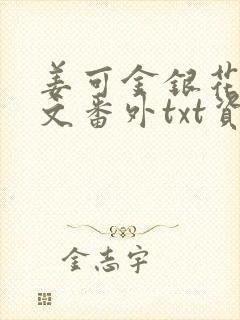 姜可金银花
文番外txt資
金志宇